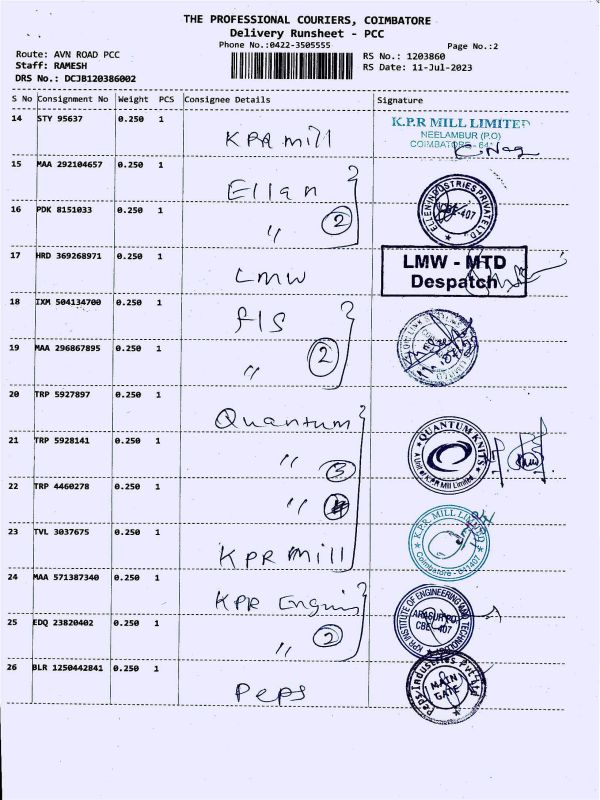 THE PROFESSIONAL COURIERS, COIMBATORE
Delivery Runsheet - PCC
Phone No.:0422-3505555
Page No.:2
Route: AVN ROAD PCC
RS No.: 1203860
Staff: RAMESH
RS Date: 11-Jul-2023
DRS No.: DCJB120386002
S No Consignment No Weight PCS Consignee Details Signature
14 STY 95637 0.250 1 KPR mill
K.P.R MILL LIMITED
NEELAMBUR (P.O)
COIMBATORE - 641
15 MAA 292104657 0.250 1 Ellen
16 PDK 8151033 0.250 1 " 2
ELLEN INDUSTRIES PRIVATE LTD
CBE-407
17 HRD 369268971 0.250 1 LMW
LMW - MTD
Despatch
18 IXM 504134700 0.250 1 fls
19 MAA 296867895 0.250 1 " 2
20 TRP 5927897 0.250 1 Quantum
21 TRP 5928141 0.250 1 " 3
QUANTUM KNITS
A Unit of K.P.R Mill Limited
22 TRP 4460278 0.250 1 "
23 TVL 3037675 0.250 1 KPR mill
K.P.R. MILL LIMITED
Coimbatore - 641407
24 MAA 571387340 0.250 1 KPR Engin
25 EDQ 23820402 0.250 1 " 2
KPR INSTITUTE OF ENGINEERING AND TECHNOLOGY
ARASUR PO.
CBE - 407
26 BLR 1250442841 0.250 1 Peps
Peps Industries Pvt Ltd
MAIN
GATE